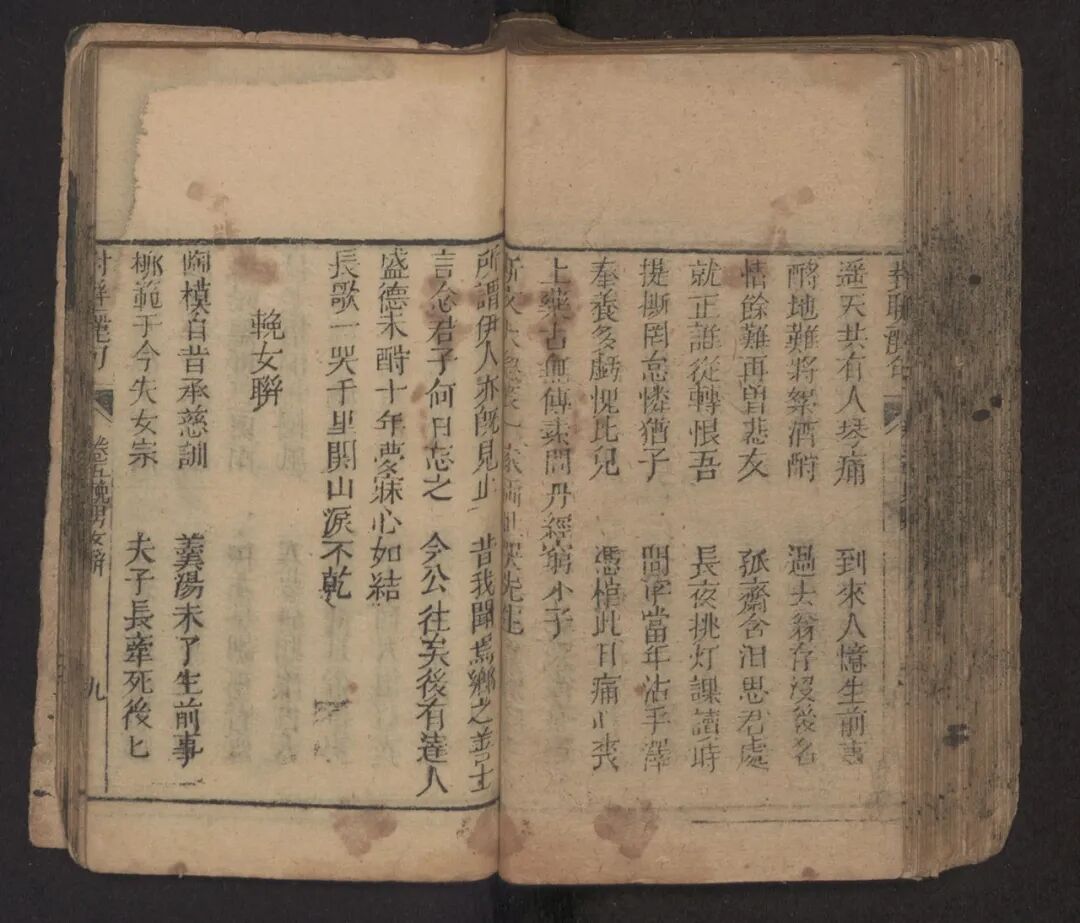 遥天共有人琴痛　到來人憶生前事
酹地難將絮酒酧　過去翁存沒後名
惜餘難再曾悲友　孤齋含泪思君處
就正誰從轉恨吾　長夜挑灯課讀時
提撕罔怠憐猶子　問字當年沾手澤
奉養多虧愧比兒　憑棺此日痛心喪
上藥古無傳素問丹經窮小子
所謂伊人亦既見止　昔我聞焉鄉之善士
言念君子何日忘之　今公往矣後有達人
盛德未酧十年夢寐心如結
長歌一哭千里關山淚不乾
輓女聨
閫模自昔承慈訓　羹湯未了生前事
梛範于今失女宗　夫子長牽死後匕
卷五輓男女聨
九